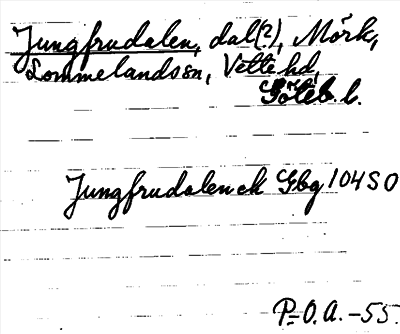 Jungfrudalen, dal(?), Mörk,
Lommelandssn, Vette hd,
Göteb. l.
Jungfrudalen ek Gbg 104 SO
P-O.A. -55.